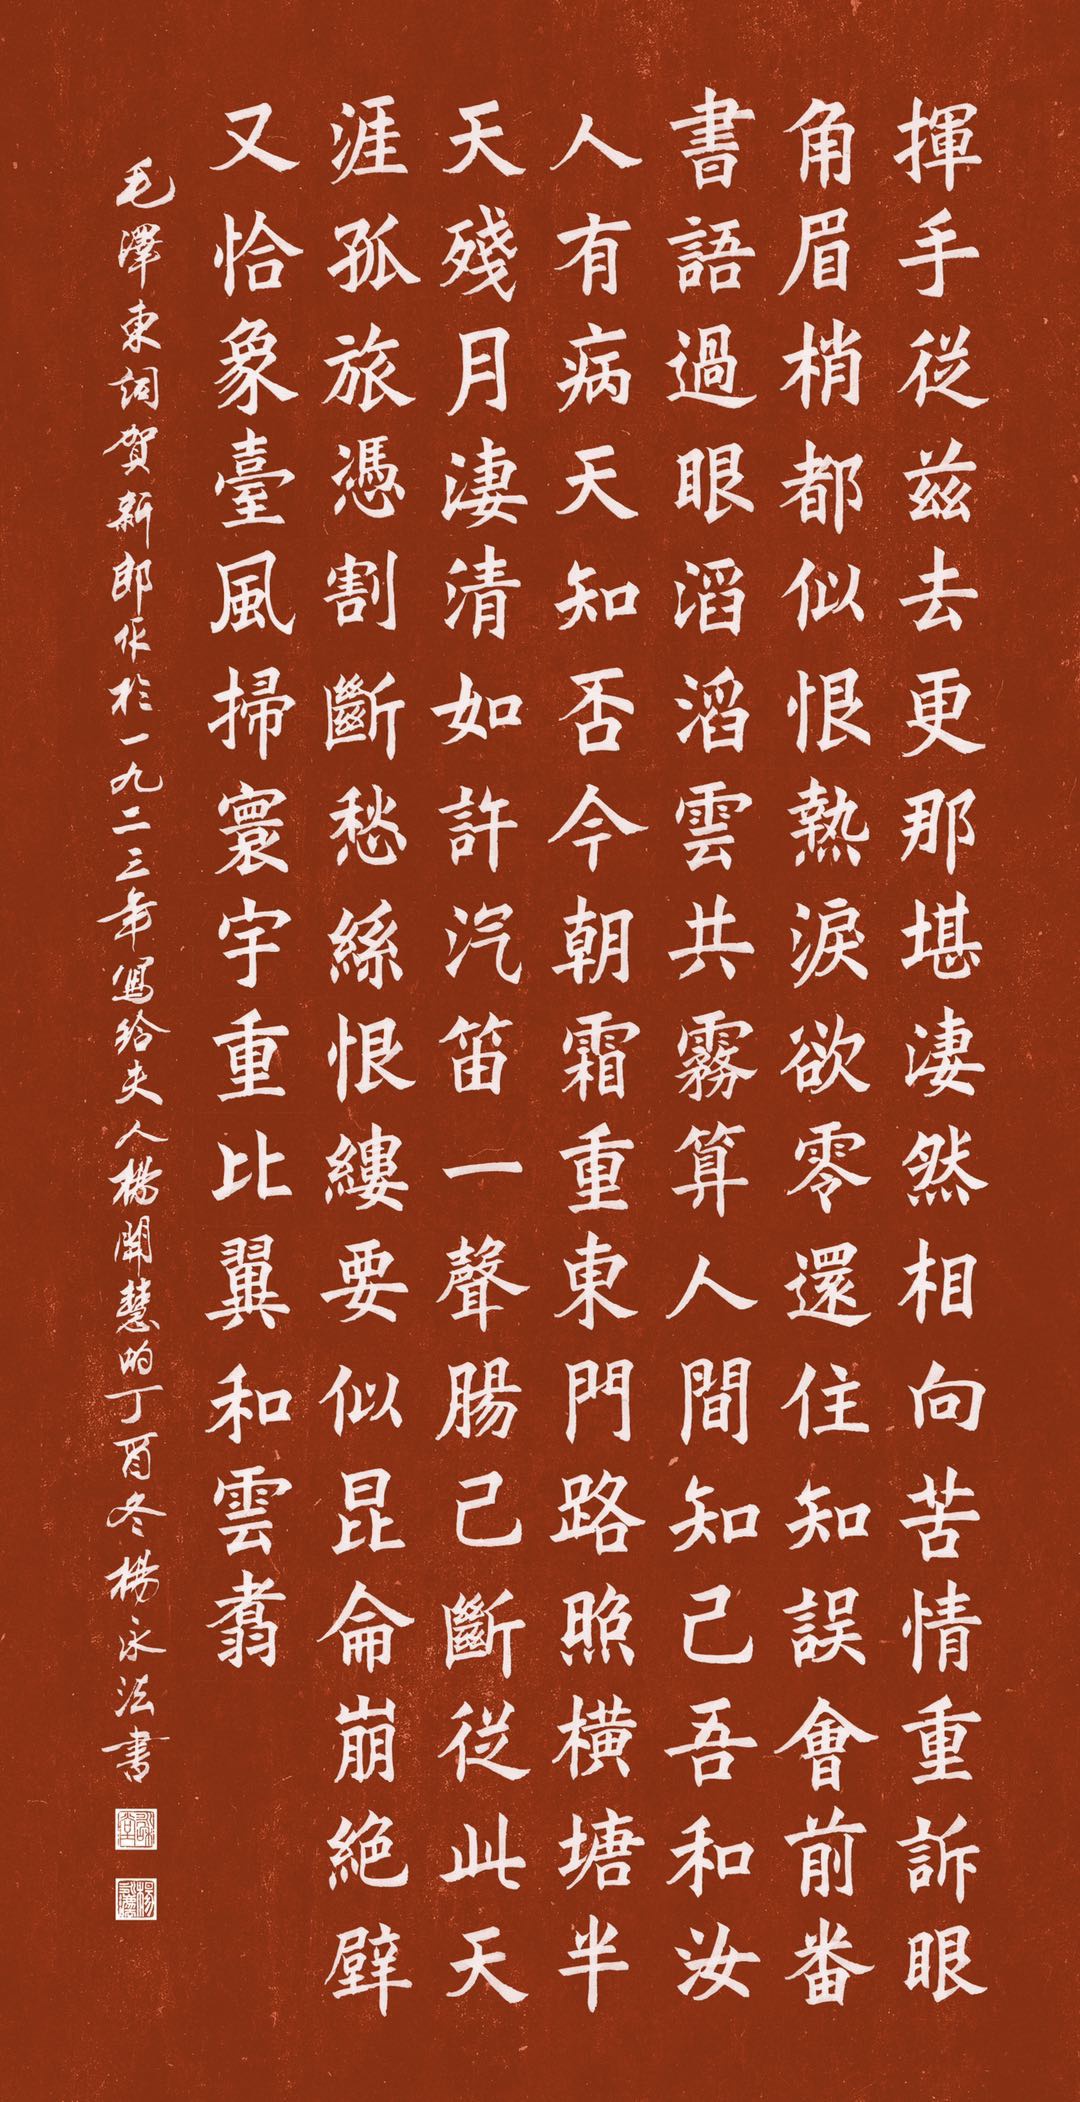 揮手從茲去更那堪淒然相向苦情重訴眼
角眉梢都似恨熱淚欲零還住知誤會前番
書語過眼滔滔雲共霧算人間知己吾和汝
人有病天知否今朝霜重東門路照橫塘半
天殘月淒清如許汽笛一聲腸已斷從此天
涯孤旅憑割斷愁絲恨縷要似昆侖崩絕壁
又恰象臺風掃寰宇重比翼和雲翥
毛澤東詞賀新郎作於一九二三年寫給夫人楊開慧的丁酉冬楊永法書